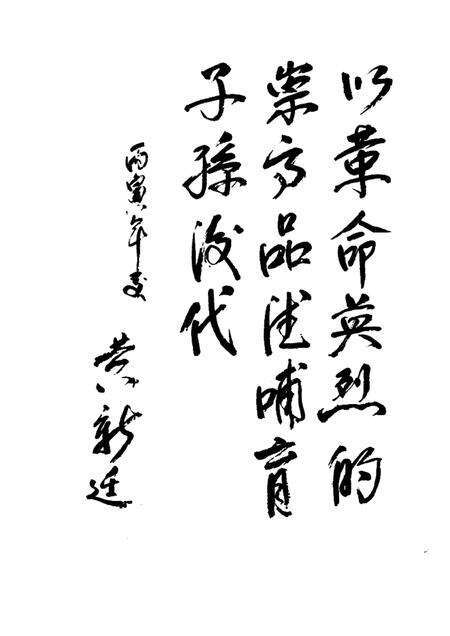 以革命英烈的
崇高品德哺育
子孫後代
丙寅年夏
黄新廷